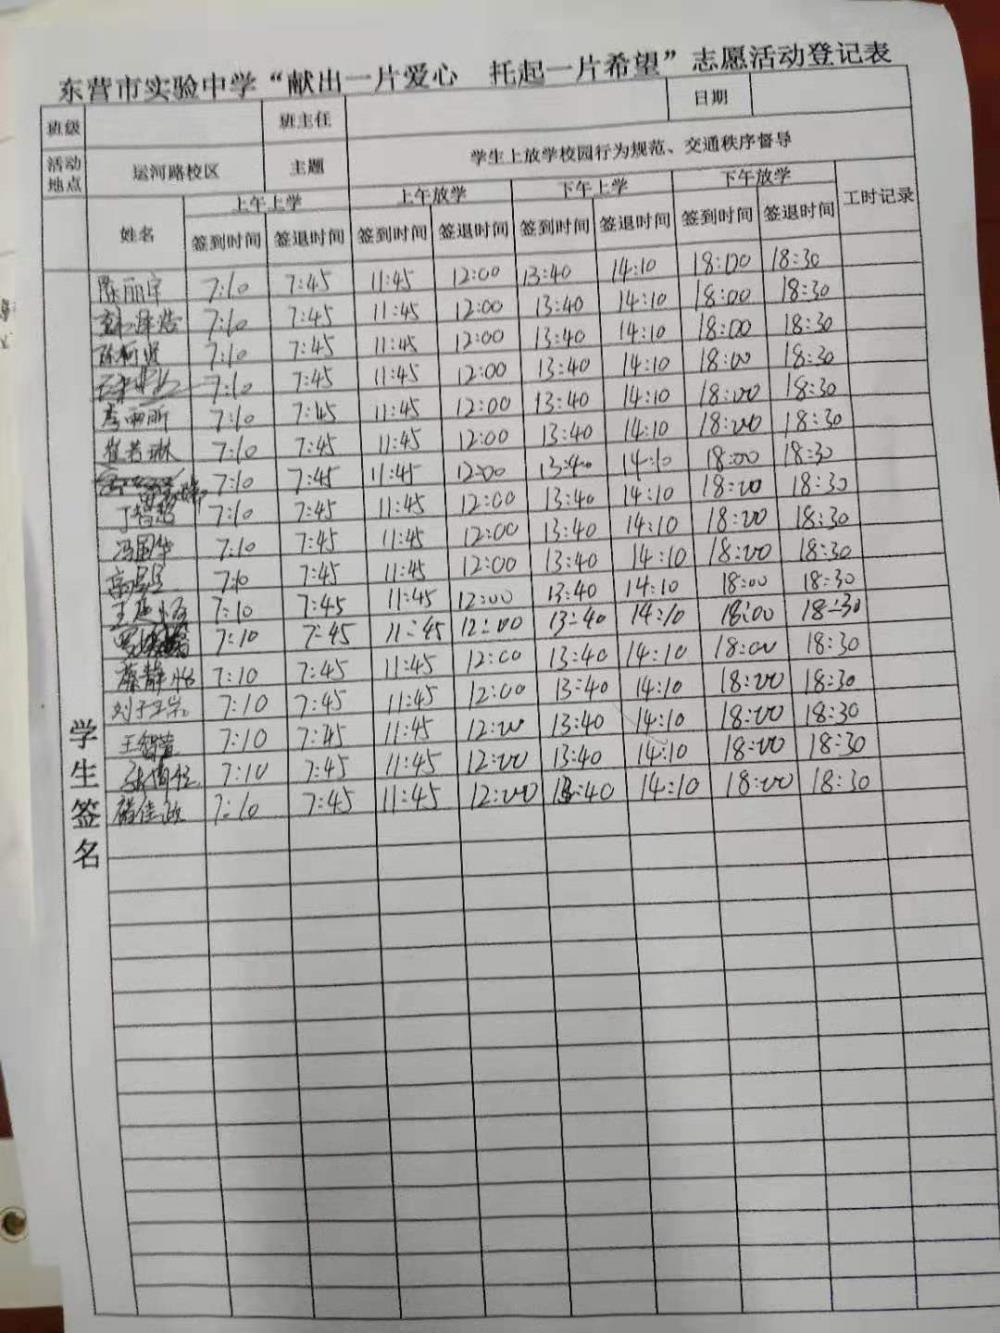 东营市实验中学“献出一片爱心 托起一片希望”志愿活动登记表
班级 班主任 日期
活动地点 运河路校区 主题 学生上放学校园行为规范、交通秩序督导
姓名 上午上学 上午放学 下午上学 下午放学 工时记录
签到时间 签退时间 签到时间 签退时间 签到时间 签退时间 签到时间 签退时间
学生签名
陈丽宇 7:10 7:45 11:45 12:00 13:40 14:10 18:00 18:30
7:10 7:45 11:45 12:00 13:40 14:10 18:00 18:30
7:10 7:45 11:45 12:00 13:40 14:10 18:00 18:30
7:10 7:45 11:45 12:00 13:40 14:10 18:00 18:30
7:10 7:45 11:45 12:00 13:40 14:10 18:00 18:30
崔若琳 7:10 7:45 11:45 12:00 13:40 14:10 18:00 18:30
7:10 7:45 11:45 12:00 13:40 14:10 18:00 18:30
丁智慧 7:10 7:45 11:45 12:00 13:40 14:10 18:00 18:30
冯国华 7:10 7:45 11:45 12:00 13:40 14:10 18:00 18:30
7:10 7:45 11:45 12:00 13:40 14:10 18:00 18:30
7:10 7:45 11:45 12:00 13:40 14:10 18:00 18:30
7:10 7:45 11:45 12:00 13:40 14:10 18:00 18:30
蔡静怡 7:10 7:45 11:45 12:00 13:40 14:10 18:00 18:30
刘子正宗 7:10 7:45 11:45 12:00 13:40 14:10 18:00 18:30
王智萱 7:10 7:45 11:45 12:00 13:40 14:10 18:00 18:30
7:10 7:45 11:45 12:00 13:40 14:10 18:00 18:30
7:10 7:45 11:45 12:00 13:40 14:10 18:00 18:30